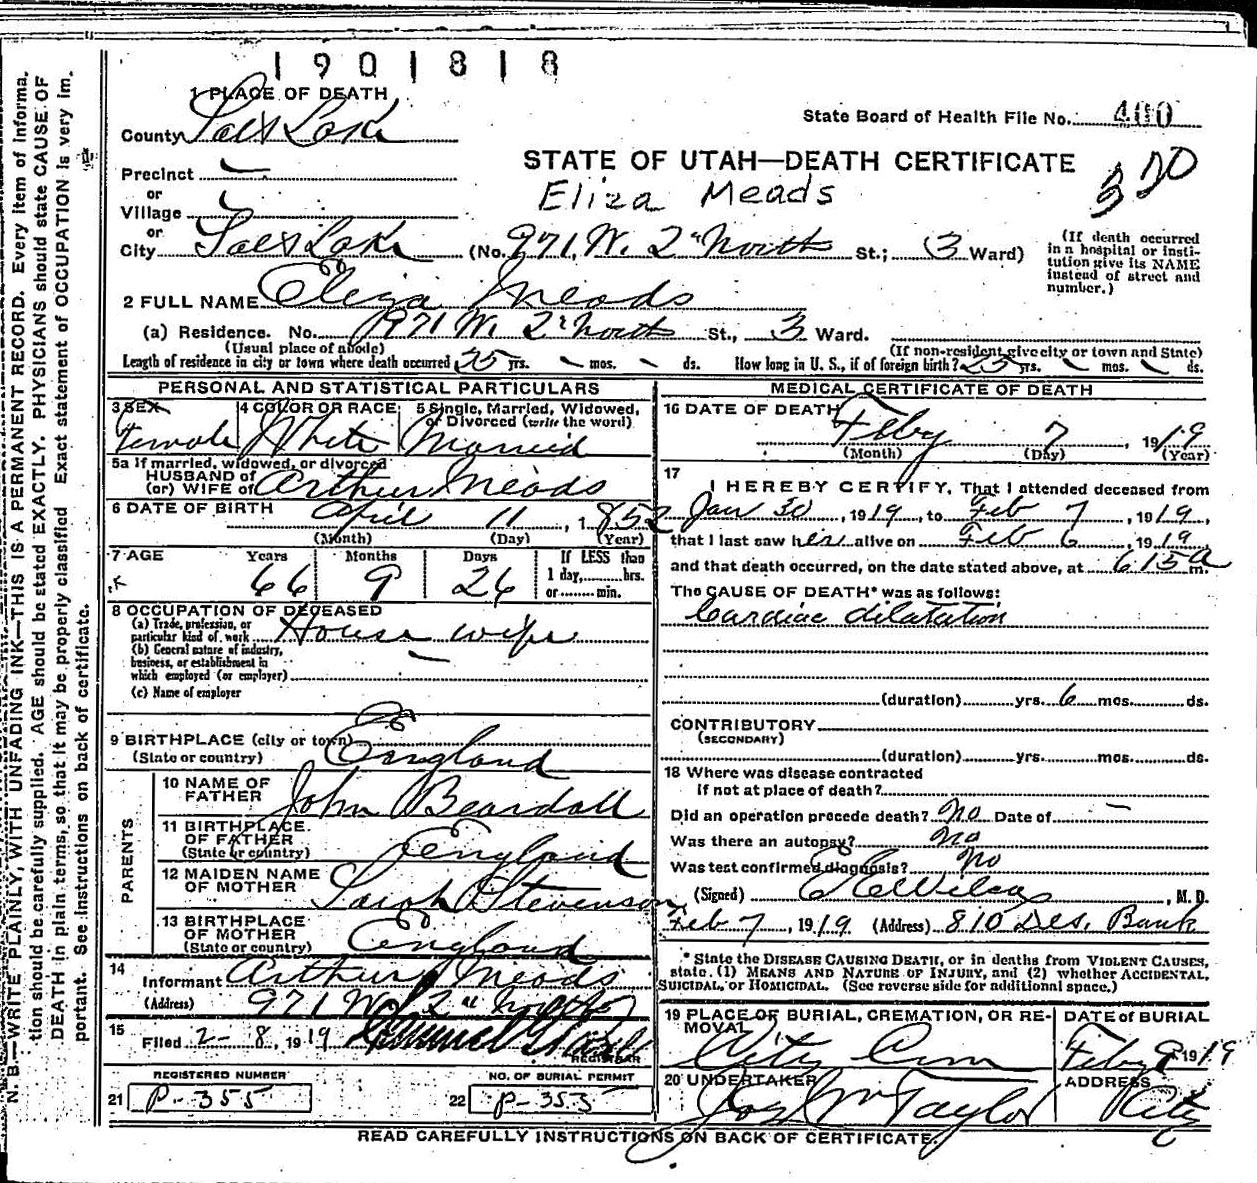 1901818
1 PLACE OF DEATH
State Board of Health File No. 400
County Salt Lake
STATE OF UTAH—DEATH CERTIFICATE
Precinct
Eliza Meads
or
Village
or
City Salt Lake (No. 971 W. 2" North St.; 3 Ward)
(If death occurred in a hospital or insti-
tution give its NAME
instead of street and
number.)
2 FULL NAME Eliza Meads
(a) Residence. No. 971 W. 2" North St., 3 Ward.
(Usual place of abode) (If non-resident give city or town and State)
Length of residence in city or town where death occurred 25 yrs. – mos. – ds. How long in U. S., if of foreign birth? 25 yrs. – mos. – ds.
PERSONAL AND STATISTICAL PARTICULARS
3 SEX 4 COLOR OR RACE 5 Single, Married, Widowed,
or Divorced (write the word)
Female White Married
5a If married, widowed, or divorced
HUSBAND of
(or) WIFE of Arthur Meads
6 DATE OF BIRTH April 11, 1852
(Month) (Day) (Year)
7 AGE Years Months Days If LESS than
66 9 26 1 day,......hrs.
or......min.
8 OCCUPATION OF DECEASED
(a) Trade, profession, or
particular kind of work House wife
(b) General nature of industry,
business, or establishment in
which employed (or employer)
(c) Name of employer
9 BIRTHPLACE (city or town)
(State or country) England
PARENTS
10 NAME OF
FATHER John Beardall
11 BIRTHPLACE
OF FATHER
(State or country) England
12 MAIDEN NAME
OF MOTHER Sarah Stevenson
13 BIRTHPLACE
OF MOTHER
(State or country) England
14
Informant Arthur Meads
(Address) 971 W. 2" North
15
Filed 2-8, 1919
REGISTRAR
REGISTERED NUMBER NO. OF BURIAL PERMIT
21 P-355 22 P-353
MEDICAL CERTIFICATE OF DEATH
16 DATE OF DEATH
Feby 7, 1919
(Month) (Day) (Year)
17
I HEREBY CERTIFY, That I attended deceased from
Jan 30, 1919, to Feb 7, 1919,
that I last saw her alive on Feb 6, 1919,
and that death occurred, on the date stated above, at 6 15 a m.
The CAUSE OF DEATH* was as follows:
Cardiac dilatation
(duration) yrs. 6 mos. ds.
CONTRIBUTORY
(SECONDARY)
(duration) yrs. mos. ds.
18 Where was disease contracted
if not at place of death?
Did an operation precede death? No Date of –
Was there an autopsy? No
Was test confirmed diagnosis? No
(Signed) , M. D.
Feb 7, 1919 (Address) 810 Des. Bank
* State the DISEASE CAUSING DEATH, or in deaths from VIOLENT CAUSES,
state. (1) MEANS AND NATURE OF INJURY, and (2) whether ACCIDENTAL,
SUICIDAL, or HOMICIDAL. (See reverse side for additional space.)
19 PLACE OF BURIAL, CREMATION, OR RE-
MOVAL DATE of BURIAL
City Cem Feby 9 1919
20 UNDERTAKER ADDRESS
Jos Wm Taylor City
READ CAREFULLY INSTRUCTIONS ON BACK OF CERTIFICATE.
N. B.—WRITE PLAINLY, WITH UNFADING INK—THIS IS A PERMANENT RECORD. Every item of informa-
tion should be carefully supplied. AGE should be stated EXACTLY. PHYSICIANS should state CAUSE OF
DEATH in plain terms, so that it may be properly classified. Exact statement of OCCUPATION is very im-
portant. See instructions on back of certificate.